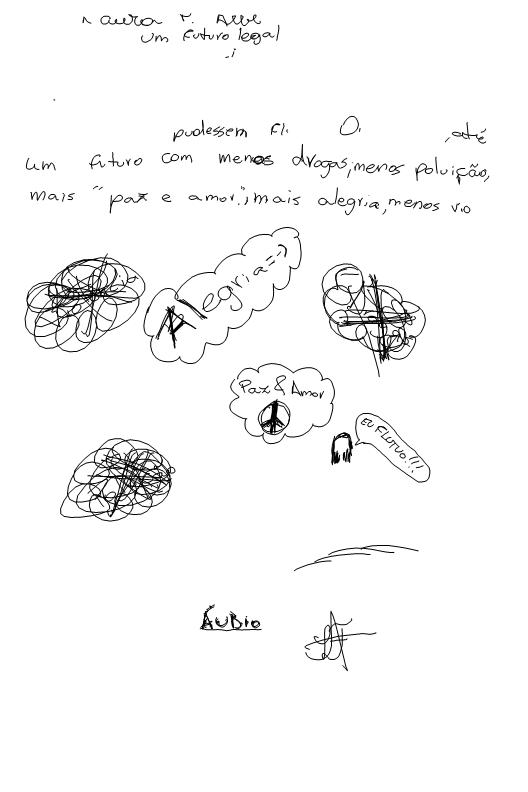 um futuro legal
pudessem até
um futuro com menos drogas, menos poluição,
mais "paz e amor", mais alegria, menos vio
Alegria =)
Paz & Amor
EU FLUTUO!!!
ÁUBIO